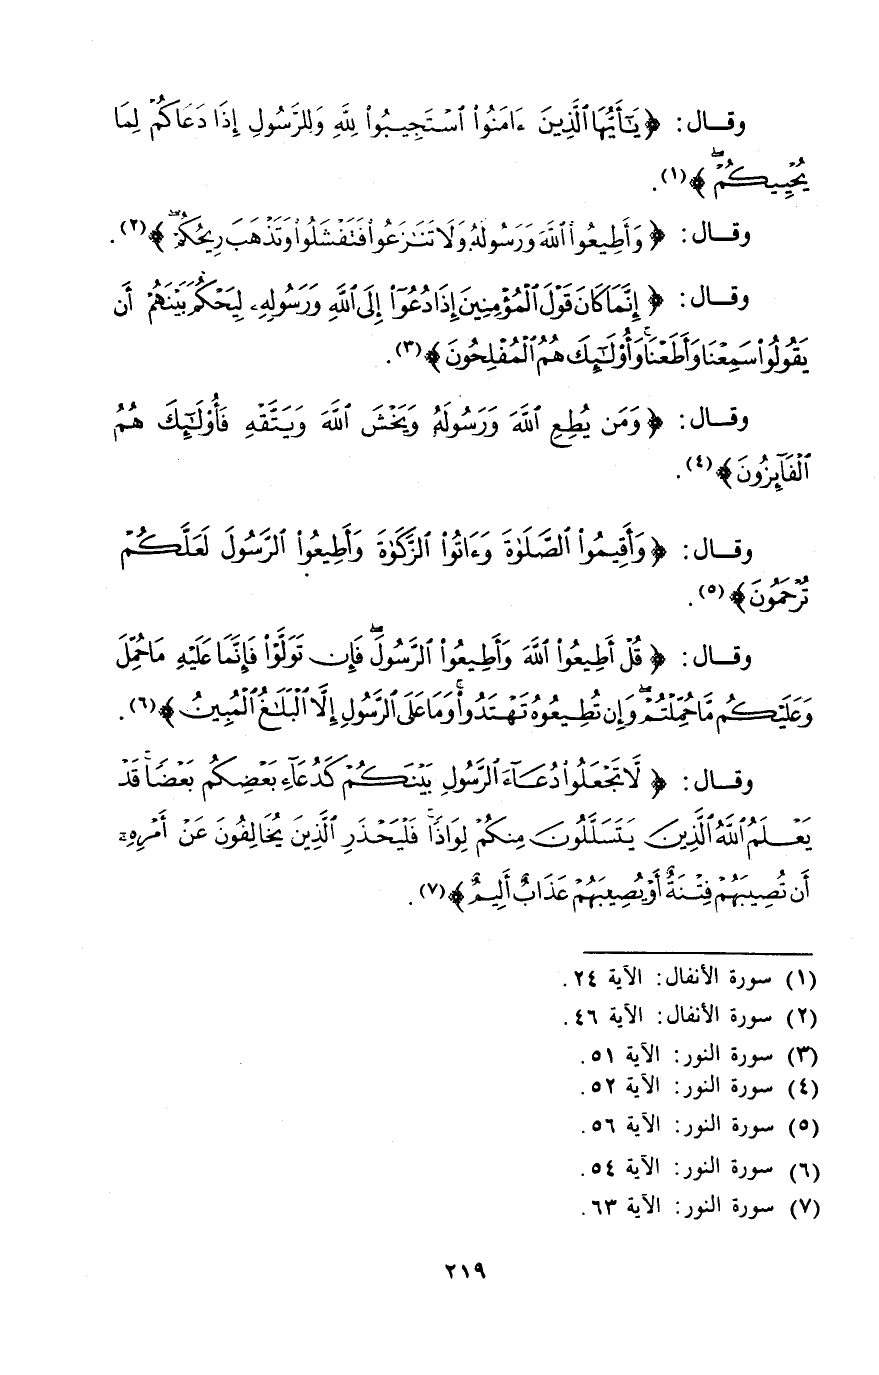 وقـال: ﴿ يَٰٓأَيُّهَا ٱلَّذِينَ ءَامَنُوا۟ ٱسْتَجِيبُوا۟ لِلَّهِ وَلِلرَّسُولِ إِذَا دَعَاكُمْ لِمَا
يُحْيِيكُمْ ۖ ﴾(١).
وقـال: ﴿ وَأَطِيعُوا۟ ٱللَّهَ وَرَسُولَهُۥ وَلَا تَنَٰزَعُوا۟ فَتَفْشَلُوا۟ وَتَذْهَبَ رِيحُكُمْ ۖ ﴾(٢).
وقـال: ﴿ إِنَّمَا كَانَ قَوْلَ ٱلْمُؤْمِنِينَ إِذَا دُعُوٓا۟ إِلَى ٱللَّهِ وَرَسُولِهِۦ لِيَحْكُمَ بَيْنَهُمْ أَن
يَقُولُوا۟ سَمِعْنَا وَأَطَعْنَا ۚ وَأُو۟لَٰٓئِكَ هُمُ ٱلْمُفْلِحُونَ ﴾(٣).
وقـال: ﴿ وَمَن يُطِعِ ٱللَّهَ وَرَسُولَهُۥ وَيَخْشَ ٱللَّهَ وَيَتَّقْهِ فَأُو۟لَٰٓئِكَ هُمُ
ٱلْفَآئِزُونَ ﴾(٤).
وقـال: ﴿ وَأَقِيمُوا۟ ٱلصَّلَوٰةَ وَءَاتُوا۟ ٱلزَّكَوٰةَ وَأَطِيعُوا۟ ٱلرَّسُولَ لَعَلَّكُمْ
تُرْحَمُونَ ﴾(٥).
وقـال: ﴿ قُلْ أَطِيعُوا۟ ٱللَّهَ وَأَطِيعُوا۟ ٱلرَّسُولَ ۖ فَإِن تَوَلَّوْا۟ فَإِنَّمَا عَلَيْهِ مَا حُمِّلَ
وَعَلَيْكُم مَّا حُمِّلْتُمْ ۖ وَإِن تُطِيعُوهُ تَهْتَدُوا۟ ۚ وَمَا عَلَى ٱلرَّسُولِ إِلَّا ٱلْبَلَٰغُ ٱلْمُبِينُ ﴾(٦).
وقـال: ﴿ لَّا تَجْعَلُوا۟ دُعَآءَ ٱلرَّسُولِ بَيْنَكُمْ كَدُعَآءِ بَعْضِكُم بَعْضًا ۚ قَدْ
يَعْلَمُ ٱللَّهُ ٱلَّذِينَ يَتَسَلَّلُونَ مِنكُمْ لِوَاذًا ۚ فَلْيَحْذَرِ ٱلَّذِينَ يُخَالِفُونَ عَنْ أَمْرِهِۦٓ
أَن تُصِيبَهُمْ فِتْنَةٌ أَوْ يُصِيبَهُمْ عَذَابٌ أَلِيمٌ ﴾(٧).
(١) سورة الأنفال: الآية ٢٤.
(٢) سورة الأنفال: الآية ٤٦.
(٣) سورة النور: الآية ٥١.
(٤) سورة النور: الآية ٥٢.
(٥) سورة النور: الآية ٥٦.
(٦) سورة النور: الآية ٥٤.
(٧) سورة النور: الآية ٦٣.
٢١٩